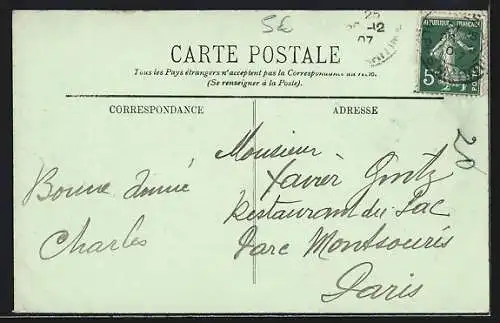 5£
25
-12
07
RÉPUBLIQUE FRANÇAISE
5
POSTES
CARTE POSTALE
Tous les Pays étrangers n'acceptent pas la Correspondance au recto.
(Se renseigner à la Poste).
CORRESPONDANCE
ADRESSE
20
Bonne année
Charles
Monsieur
Xavier
Restaurant du Lac
Parc Montsouris
Paris